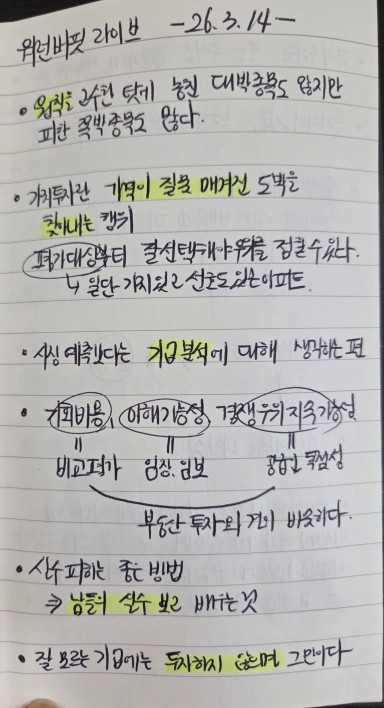 워런버핏 라이브 -26.3.14-
• 원칙을 고수한 탓에 놓친 대박종목도 많지만
피한 쪽박종목도 많다.
• 가치투자란 가격이 잘못 매겨진 도박을
찾아내는 행위
평가대상부터 잘선택해야 우위를 점할수있다.
↳ 일단 가치있고 선호도있는아파트.
• 시장 예측보다는 기업분석에 대해 생각하는 편
• 기회비용, 이해가능성, 경쟁우위 지속가능성
= = =
비교평가 임장.임보 공급.독점성
부동산 투자와 거의 비슷하다.
• 실수 피하는 좋은 방법
⇒ 남들의 실수 보고 배우는것
• 잘 모르는 기업에는 투자하지 않으면 그만이다